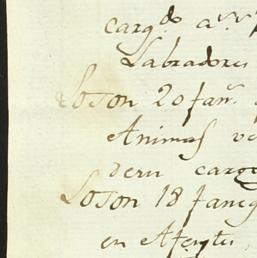 carg.do a v.
Labradores
Loson 20 fan.s
Animas ve
deru cargo
Loson 18 faneg
en Afentu,